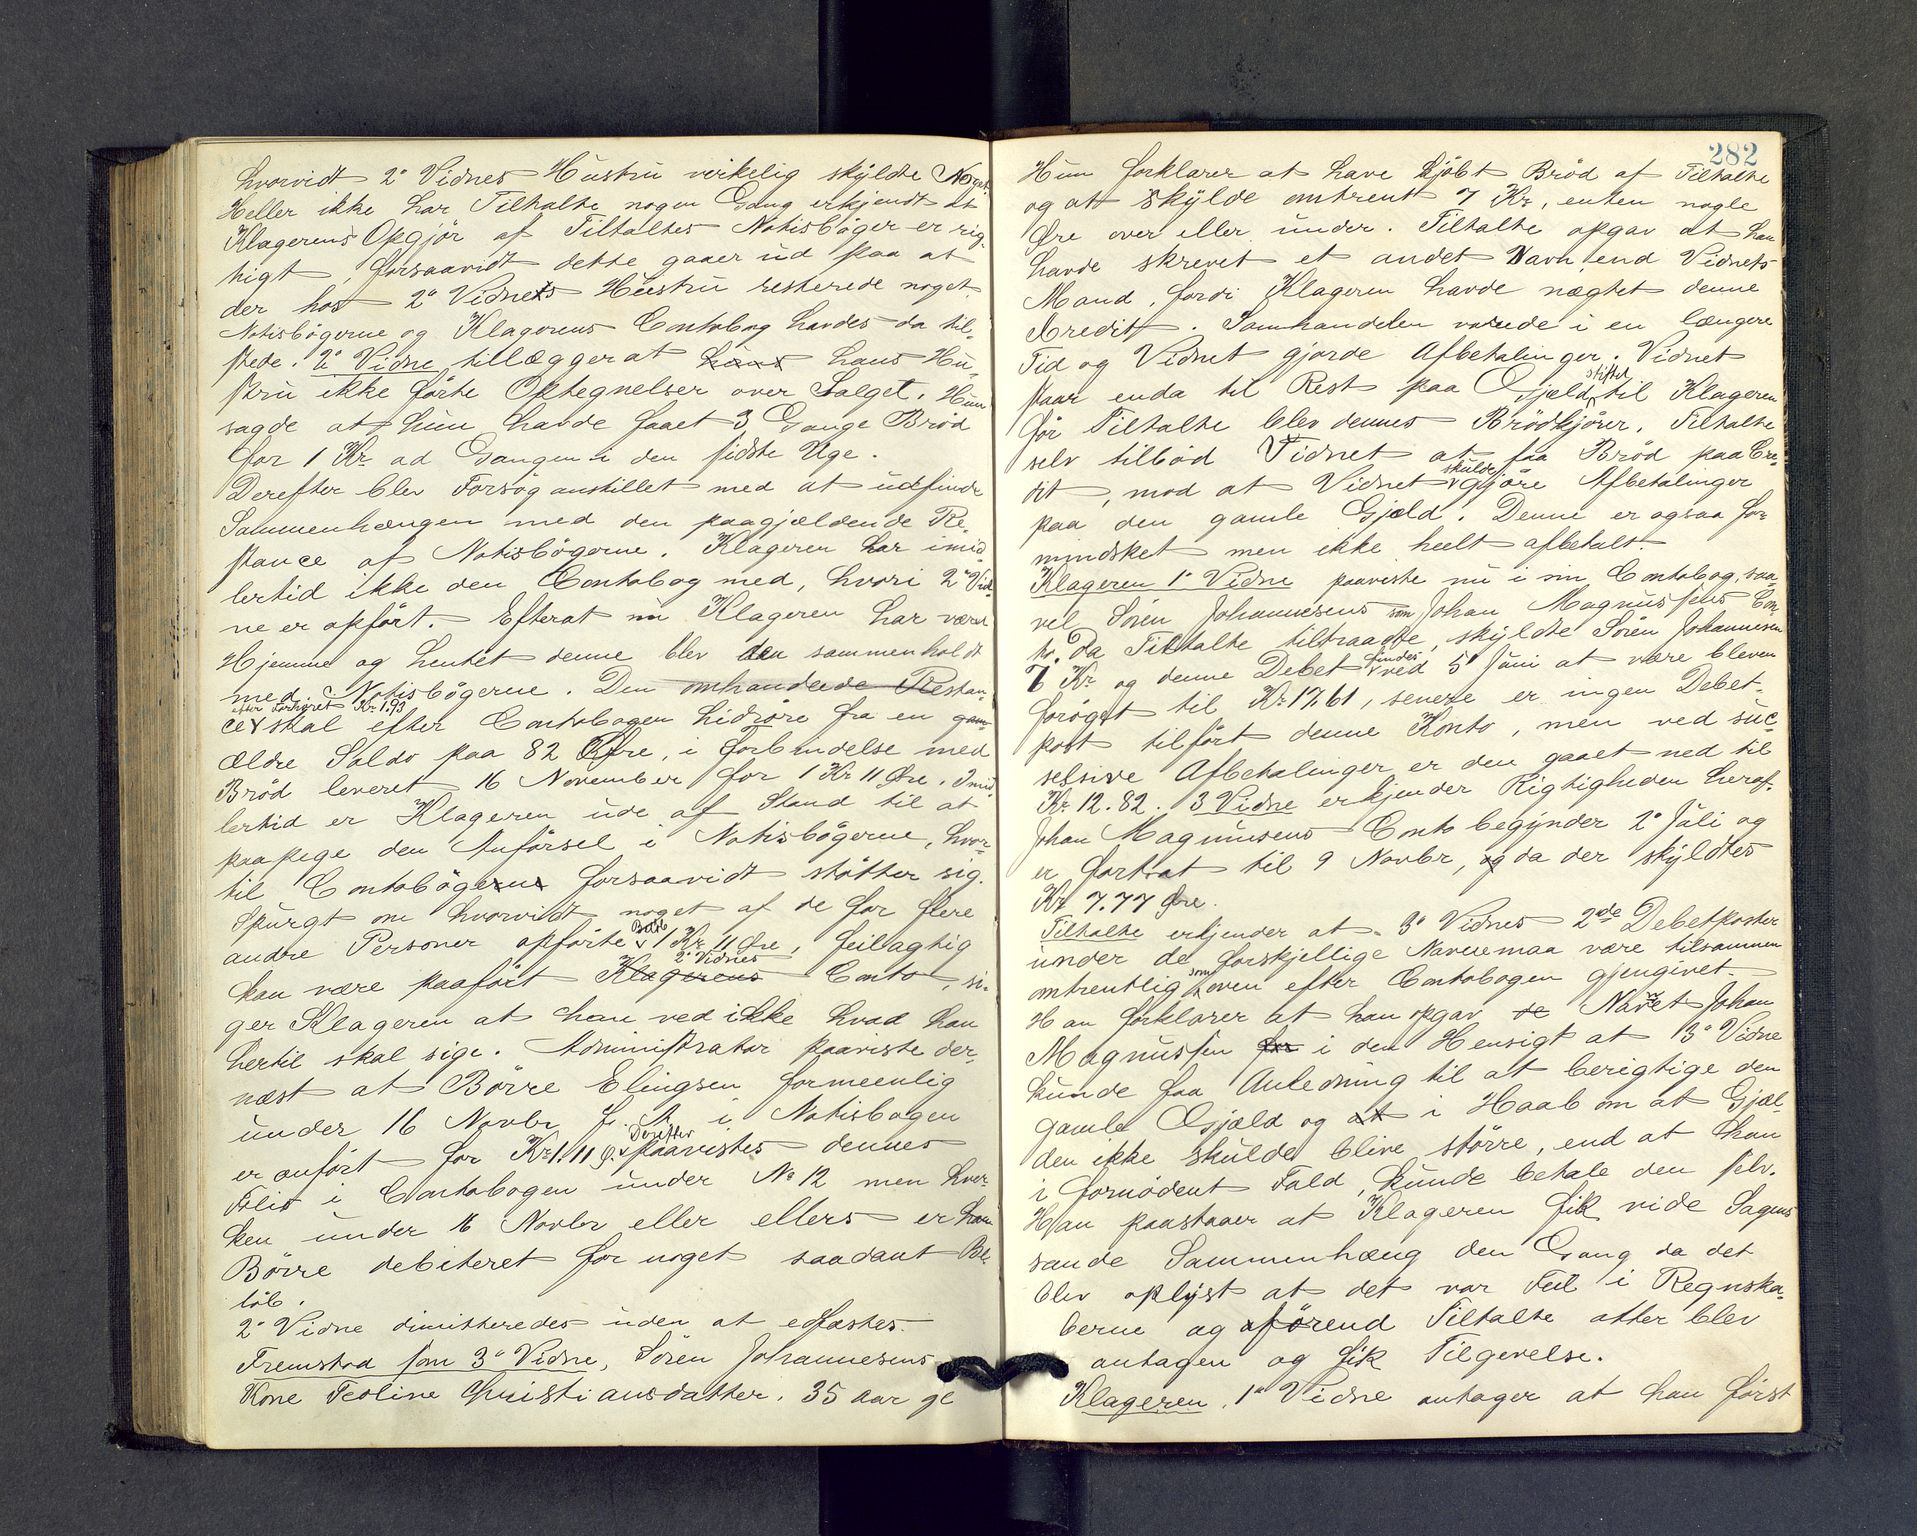 hvorvidt 2° Vidnes Hustru virkelig skyldte Noget.
Heller ikke har Tiltalte nogen Gang erkjendt at
Klagerens Opgjör af Tiltaltes Notisböger er rig-
tigt, forsaavidt dette gaaer ud paa at
der hos 2° Vidnets Hustru resterede noget.
Notisbögerne og Klagerens Contobog havdes da til-
stede. 2° Vidne tillægger at hans hans Hu-
stru ikke förte Optegnelser over Salget. Hun
sagde at hun havde faaet 3 Gange Bröd
for 1 Kr. ad Gangen i den sidste Uge.
Derefter blev Forsög anstillet med at udfinde
Sammenhængen med den paagjældende Re-
stance af Notisbögerne. Klageren har imid-
lertid ikke den Contobog med, hvori 2° Vid-
ne er opfört. Efterat nu Klageren har været
Hjemme og hentet denne blev den sammenholdt
med Notisbögerne. Den omhandlede Restan-
efter Forhöret Kr 1.93
ce skal efter Contobogen hidröre fra en gam-
ældre Saldo paa 82 Öre, i Forbindelse med
Bröd leveret 16 November for 1 Kr 11 Öre. Imid-
lertid er Klageren ude af Stand til at
paapege den Anförsel i Notisbögerne, hvor-
til Contobögerne forsaavidt stötter sig.
Spurgt om hvorvidt noget af de for flere
andre Personer opförte Belöb 1 Kr 11 Öre, feilagtig
kan være paafört Klagerens 2° Vidnes Conto, si-
ger Klageren at han ved ikke hvad han
hertil skal sige. Administrator paaviste der-
næst at Börre Elingsen formeenlig
under 16 Novbr f. A. i Notisbogen
er anfört for Kr 1.11 ö. Derefter paavistes dennes
Folio i Contobogen under No 12 men hver-
ken under 16 Novbr eller ellers er han
Börre debiteret for noget saadant Be-
löb.
2° Vidne dimitteredes uden at edfæstes.
Fremstod som 3° Vidne, Sören Johannesens
Kone Teoline Christiansdatter, 35 Aar gl
282
Hun forklarer at have kjöbt Bröd af Tiltalte
og at skylde omtrent 7 Kr, enten nogle
Öre over eller under. Tiltalte opgav at han
havde skrevet et andet Navn end Vidnets
Mand, fordi Klageren havde nægtet denne
Credit. Samhandelen varede i en længere
Tid og Vidnet gjorde Afbetalinger. Vidnet
staar enda til Rest paa Gjæld stiftet til Klageren
för Tiltalte blev dennes Brödkjörer. Tiltalte
selv tilbød Vidnet at faa Bröd paa Cre-
dit, mod at Vidnet skulde gjöre Afbetalinger
paa den gamle Gjæld. Denne er ogsaa for-
mindsket men ikke heelt afbetalt.
Klageren 1° Vidne paaviste nu i sin Contobog, saa-
vel Sören Johannesens som Johan Magnussens Con-
to. Da Tiltalte tiltraadte, skyldte Sören Johannesen
7 Kr og denne Debet findes ved 5' Juni at være bleven
foröget til Kr 17.61, senere er ingen Debet-
post tilfört denne Konto, men ved suc-
sesive Afbetalinger er den gaaet ned til
Kr. 12.82. 3 Vidne erkjender Rigtigheden heraf.
Johan Magnusens Conto begynder 2° Juli og
er fortsat til 9 Novbr, og da der skyldtes
Kr 7.77 Öre.
Tiltalte erkjender at 3° Vidnes 2de Debetposter
under de forskjellige Navne maa være tilsammen
omtrentlig som oven efter Contobogen gjengivet.
Han forklarer at han opgav de Navnet Johan
Magnussen for i den Hensigt at 3° Vidne
kunde faa Anledning til at berigtige den
gamle Gjæld og at i Haab om at Gjæl-
den ikke skulde blive större, end at han
i fornödent Fald kunde betale den selv.
Han paastaaer at Klageren fik vide Sagens
sande Sammenhæng den Gang da det
blev oplyst at det var Feil i Regnska-
berne og aförend Tiltalte atter blev
antagen og fik Tilgivelse.
Klageren, 1° Vidne antager at han först